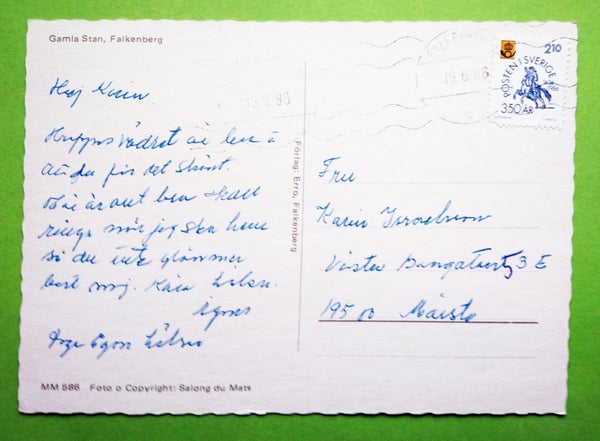 Gamla Stan, Falkenberg
Hej Karin
Hoppas vädret är bra å
att du får det skönt.
är allt bra skall
ringa när jag ska hem
så du inte glömmer
bort mig. Kära Hälsn.
Agnes
Egon Hälsar
MM 586 Foto o Copyright: Salong du Mats
Förlag: Erro, Falkenberg
FALKENBERG
19.6.86
19.6.86
2.10
POSTEN I SVERIGE
1636 1986
350 ÅR
Fru
Karin Israelsson
Västra Bangatan 53 E
195 00 Märsta